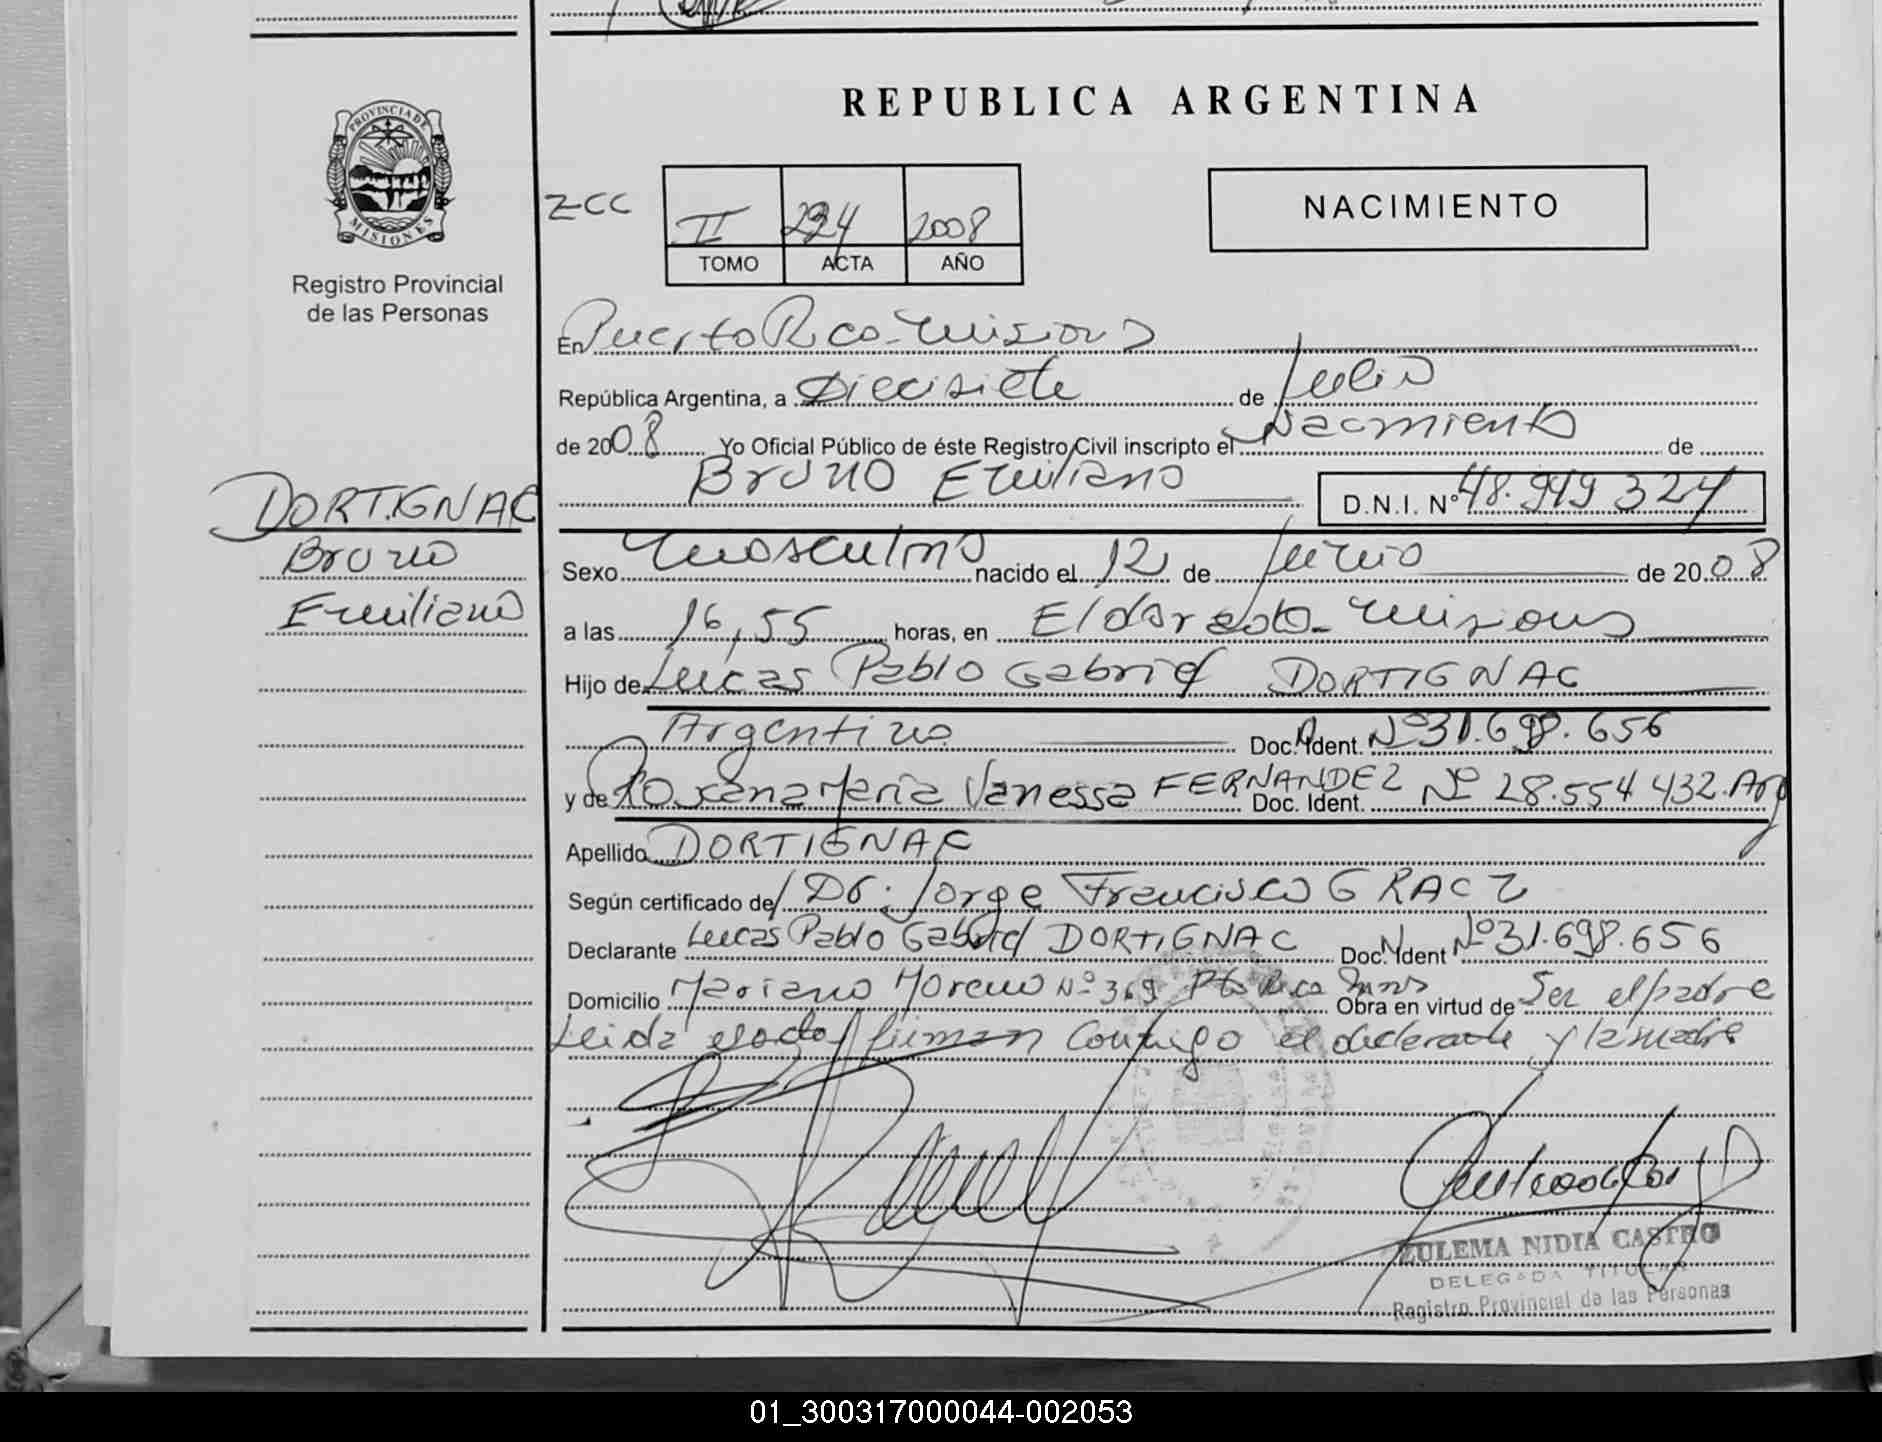 REPUBLICA ARGENTINA
PROVINCIA DE
MISIONES
Registro Provincial
de las Personas
zcc
II 224 2008
TOMO ACTA AÑO
NACIMIENTO
En Puerto Rico - Misiones
República Argentina, a Diecisiete de Julio
de 2008 Yo Oficial Público de éste Registro Civil inscripto el Nacimiento de
Bruno Emiliano D.N.I. Nº 48.949 324
DORTIGNAC
Bruno
Emiliano
Sexo Masculino nacido el 12 de Junio de 2008
a las 16,55 horas, en Eldorado - Misiones
Hijo de Lucas Pablo Gabriel DORTIGNAC
Argentino Doc. N Ident. Nº 31.698.656
y de Roxana María Vanessa FERNANDEZ Doc. Ident. Nº 28.554 432. Arg
Apellido DORTIGNAC
Según certificado de/ Dr. Jorge Francisco GRACZ
Declarante Lucas Pablo Gabriel DORTIGNAC Doc. N Ident Nº 31.698.656
Domicilio Mariano Moreno Nº 369 Pto Rico Mnes Obra en virtud de Ser el padre
Leida el acta firman conmigo el declarante y la madre
ZULEMA NIDIA CASTRO
DELEGADA TITULAR
Registro Provincial de las Personas
01_300317000044-002053